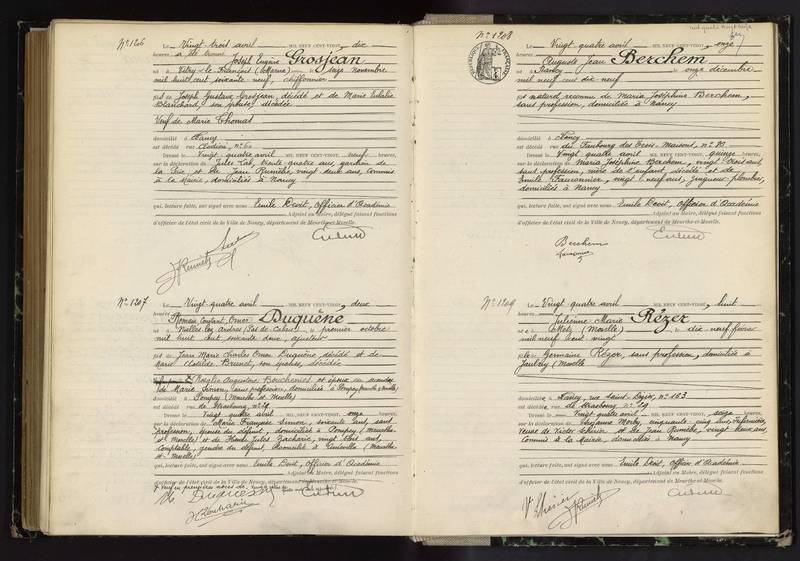 N° 1206
Le Vingt trois avril MIL NEUF CENT-VINGT, dix
heures est décédé Joseph Eugène Grosjean
né à Vitry-le-François (Marne) le seize novembre
mil huit cent soixante neuf, chiffonnier
fils de Joseph Gustave Grosjean, décédé et de Marie
Blanchard, son épouse, décédée
Veuf de Marie Thomas
domicilié à Nancy
est décédé rue n° 60
Dressé le Vingt quatre avril MIL NEUF CENT-VINGT, neuf heures,
sur la déclaration de Jules vingt quatre ans, gardien de
la Paix, et de Jean Runière, vingt deux ans, Commis
à la Mairie, domiciliés à Nancy
qui, lecture faite, ont signé avec nous Emile Devit, Officier d'Académie
Adjoint au Maire, délégué faisant fonctions
d'officier de l'état civil de la Ville de Nancy, département de Meurthe-et-Moselle.
N° 1207
Le Vingt quatre avril MIL NEUF CENT-VINGT, deux
heures Romain Constant Omer Duquène
né à Nielles lez Ardres (Pas de Calais) le premier octobre
mil huit cent soixante deux, ajusteur
fils de Jean Marie Charles Omer Duquène décédé et de
Marie Clotilde Brunet, son épouse, décédée
Rosalie Augustine Bouchenies et époux en secondes
de Marie Simon, sans profession, domiciliée à Pompey
domicilié à Pompey (Meurthe et Moselle)
est décédé rue de Strasbourg, n° 29
Dressé le Vingt quatre avril MIL NEUF CENT-VINGT, onze heures,
sur la déclaration de Marie Françoise Simon, soixante ans, sans
profession, épouse du défunt, domiciliée à Pompey (Meurthe
et Moselle) et de Jules Zacharie, vingt trois ans,
comptable, gendre du défunt, domicilié à (Meurthe
et Moselle)
qui, lecture faite, ont signé avec nous Emile Devit, Officier d'Académie
Adjoint au Maire, délégué faisant fonctions
d'officier de l'état civil de la Ville de Nancy, département de Meurthe-et-Moselle.
N° 1208
Le Vingt quatre avril MIL NEUF CENT-VINGT, onze
heures Auguste Jean Berchem
né à Nancy le onze décembre
mil neuf cent dix neuf
fils naturel reconnu de Maria Joséphine Berchem,
sans profession, domiciliée à Nancy
domicilié à Nancy
est décédé rue du Faubourg des Trois Maisons, n° 80
Dressé le Vingt quatre avril MIL NEUF CENT-VINGT, quinze heures,
sur la déclaration de Maria Joséphine Berchem, vingt trois ans,
sans profession, mère de l'enfant, décédé et de
Emile vingt neuf ans, Zingueur-plombier,
domiciliés à Nancy
qui, lecture faite, ont signé avec nous Emile Devit, Officier d'Académie
Adjoint au Maire, délégué faisant fonctions
d'officier de l'état civil de la Ville de Nancy, département de Meurthe-et-Moselle.
Berchem
N° 1209
Le Vingt quatre avril MIL NEUF CENT-VINGT, huit
heures Julienne Marie Rézer
née à Metz (Moselle) le dix neuf février
mil neuf cent vingt
fille de Germaine Rézer, sans profession, domiciliée à
Jaulny (Moselle)
domiciliée à Nancy, rue Saint Dizier, n° 103
est décédée rue de Strasbourg, n° 29
Dressé le Vingt quatre avril MIL NEUF CENT-VINGT, seize heures,
sur la déclaration de cinquante cinq ans, Infirmière,
Veuve de Victor et de Jean Runière, vingt deux ans
Commis à la Mairie, domiciliés à Nancy
qui, lecture faite, ont signé avec nous Emile Devit, Officier d'Académie
Adjoint au Maire, délégué faisant fonctions
d'officier de l'état civil de la Ville de Nancy, département de Meurthe-et-Moselle.